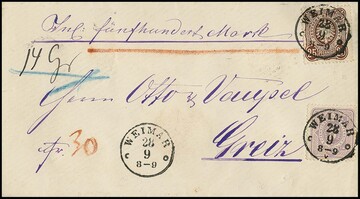 Incl. fünfhundert Mark
WEIMAR
14 Gr
Herrn Otto & Vaupel
WEIMAR
28
9
8-9
fr. 30
Greiz
WEIMAR
28
9
8-9